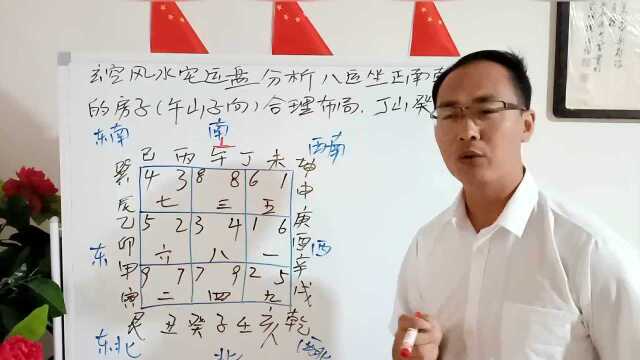 玄空风水宅运盘分析八运坐正南
的房子(午山子向)合理布局.丁山癸
东南 南 西南
巳 丙 午 丁 未 坤
巽 4 3 8 8 6 1 申
辰 七 三 五
乙 5 2 3 4 1 6 庚
东 卯 六 八 一 酉 西
甲 9 7 7 9 2 5 辛
寅 二 四 九 戌
艮 丑 癸 子 壬 亥 乾
东北 北